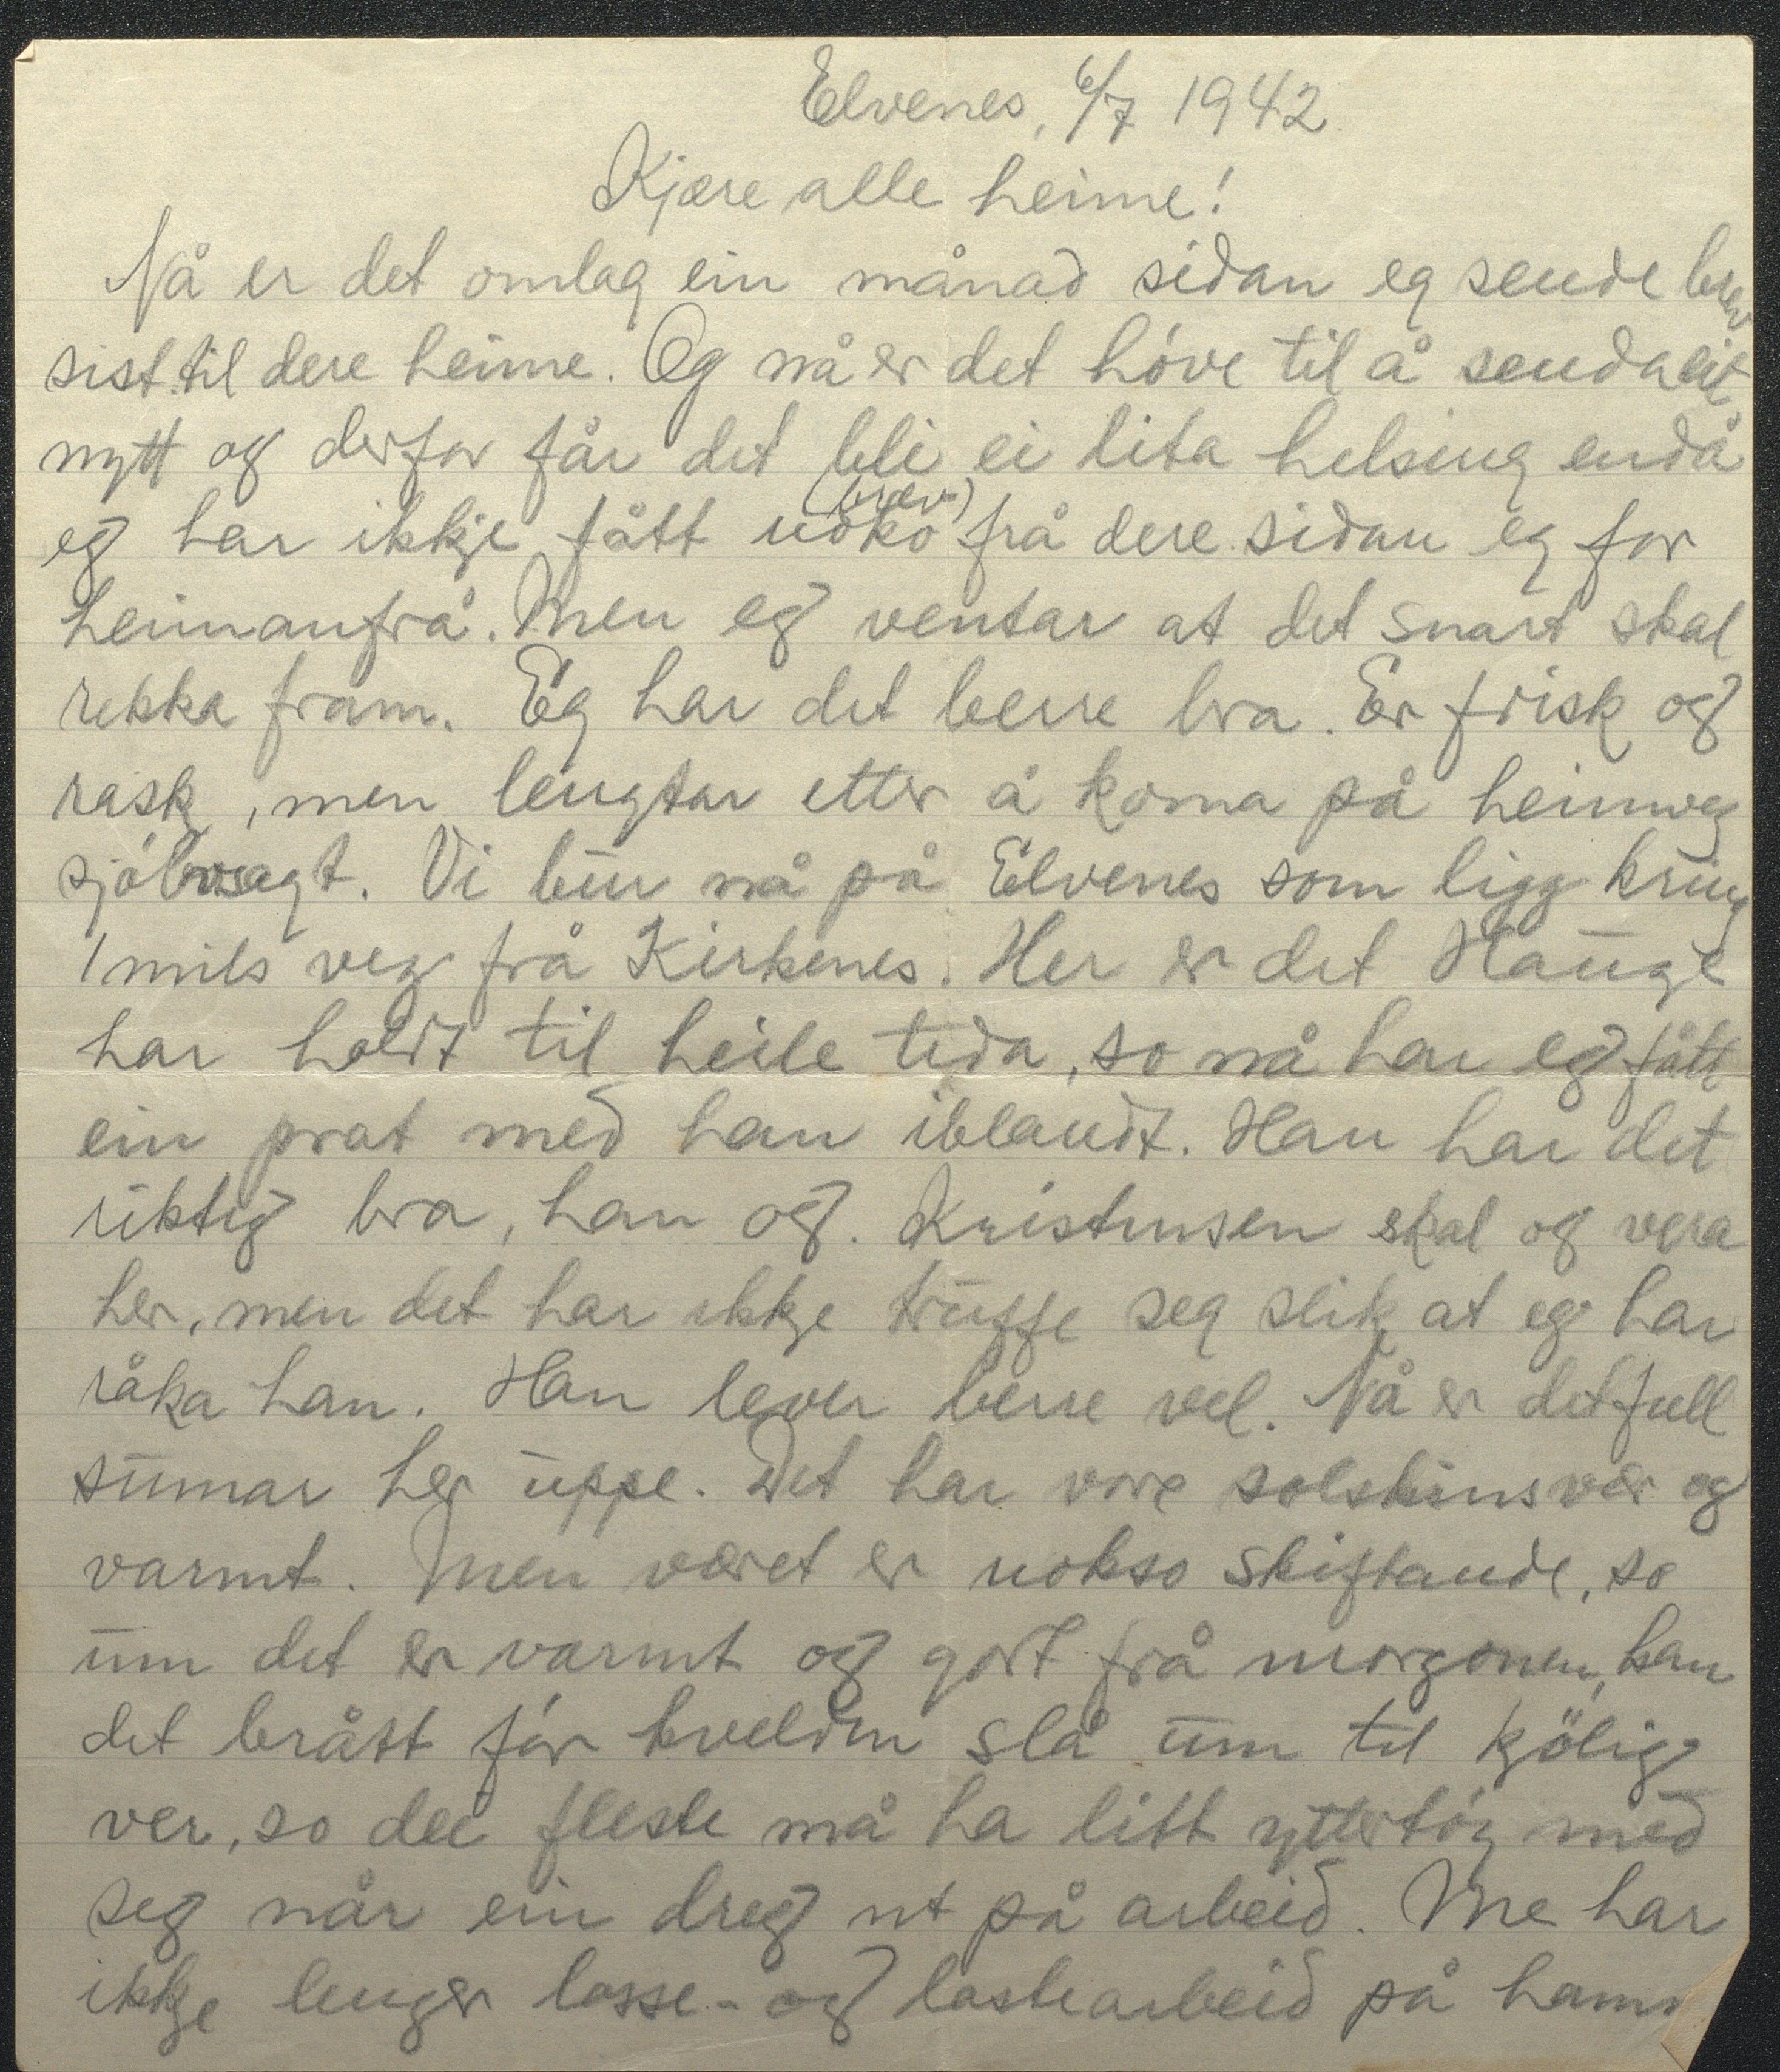 Elvenes, 6/7 1942.
Kjære alle heime!
Nå er det omlag ein månad sidan eg sende brev
sist til dere heime. Og nå er det høve til å senda eit
nytt og derfor får det bli ei lita helsing endå
eg har ikkje fått noko (brev) frå dere sidan eg for
heimanfrå. Men eg ventar at det snart skal
rekka fram. Eg har det berre bra. Er frisk og
rask, men lengtar etter å koma på heimveg
sjølvsagt. Vi bur nå på Elvenes som ligg kring
1 mils veg frå Kirkenes. Her er det Hauge
har holdt til heile tida, so nå har eg fått
ein prat med han iblandt. Han har det
riktig bra, han og. Kristensen skal og vera
her, men det har ikkje truffe seg slik at eg har
råka han. Han lever berre vel. Nå er det full
sumar her uppe. Det har vore solskinsvær og
varmt. Men været er nokso skiftande, so
um det er varmt og gort frå morgonen, kan
det brått før kvelden slå um til kjølig
ver, so dei fleste må ha litt yttertøy med
seg når ein dreg ut på arbeid. Me har
ikkje lenger losse- og lastearbeid på hamn